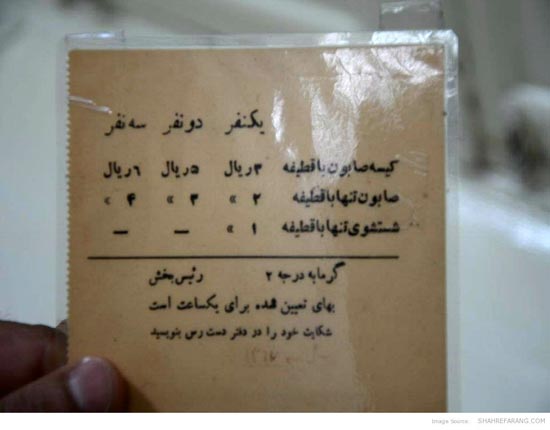 یکنفر دو نفر سه نفر
کیسه صابون با قطیفه ۳ ریال ۵ ریال ۶ ریال
صابون تنها با قطیفه ۲ » ۳ » ۴ »
شستشوی تنها با قطیفه ۱ » — —
گرمابه درجه ۲ رئیس بخش
بهای تعیین شده برای یکساعت است
شکایت خود را در دفتر دست رس بنویسید
Image Source: SHAHREFARANG.COM